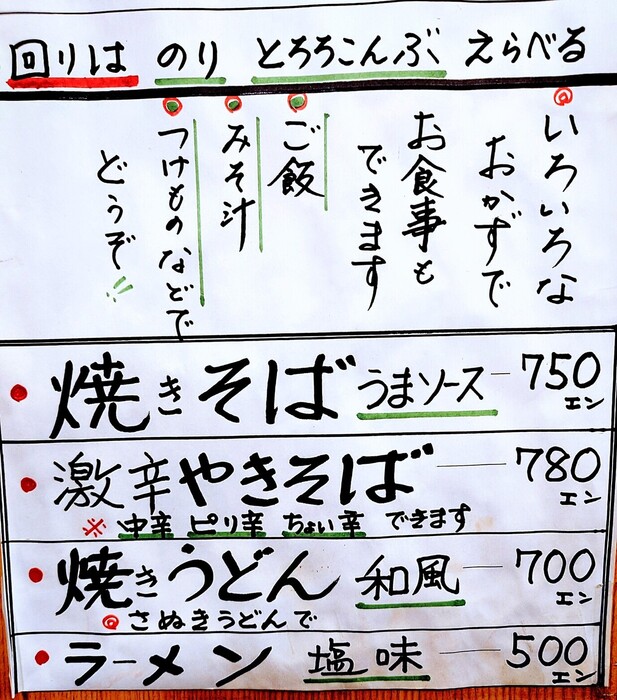 回りは のり とろろこんぶ えらべる
@いろいろな
おかずで
お食事も
できます
ご飯
みそ汁
つけものなどで
どうぞ!!
焼きそば うまソース 750エン
激辛やきそば 780エン
※中辛 ピリ辛 ちょい辛 できます
焼きうどん 和風 700エン
@さぬきうどんで
ラーメン 塩味 500エン